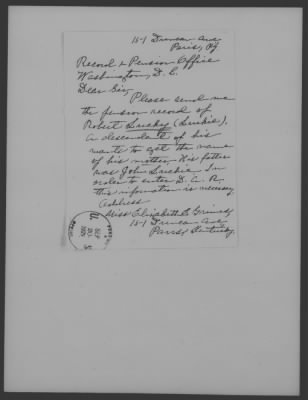 151 Duncan Ave
Paris, Ky
Record & Pension Office
Washington, D. C.
Dear Sir,
Please send me
the pension record of
Robert Lucky (Luckie).
A descendant of his
wants to get the name
of his mother. His father
was John Luckie. In
order to enter D. A. R.
this information is necessary
Address
Miss Elizabeth Grimes
151 Duncan Ave
Paris, Kentucky.